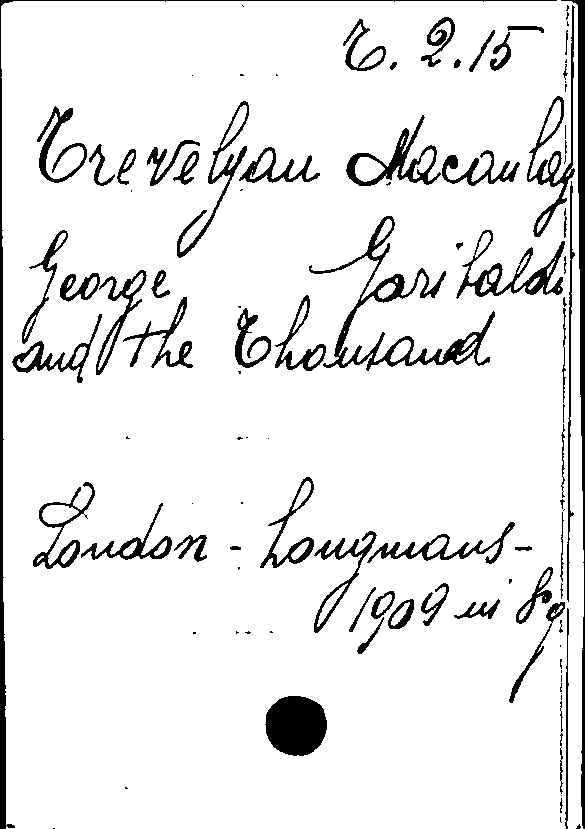 T. 2.15
Trevelyan Macaulay
George Garibaldi
and the Thousand
London - Longmans -
1909 in 8º